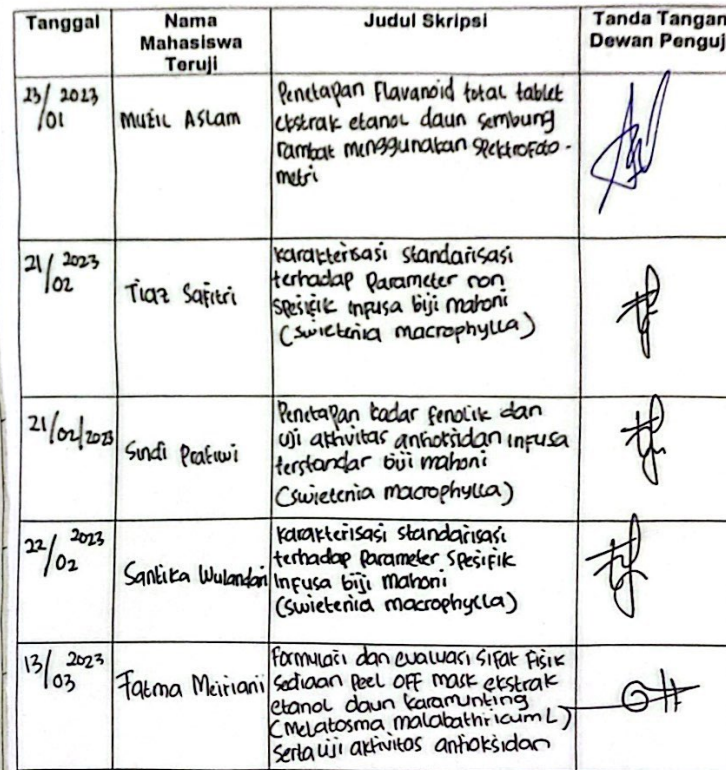 Tanggal
Nama
Mahasiswa
Teruji
Judul Skripsi
Tanda Tangan
Dewan Penguji
23/01 2023
Muzil Aslam
Penetapan Flavanoid total tablet
ekstrak etanol daun sembung
rambat menggunakan spektrofoto-
metri
21/02 2023
Tiaz Safitri
karakterisasi standarisasi
terhadap Parameter non
spesifik infusa biji mahoni
(swietenia macrophylla)
21/02/2023
Sindi Pratiwi
Penetapan kadar fenolik dan
uji aktivitas antioksidan infusa
terstandar biji mahoni
(swietenia macrophylla)
22/02 2023
Santika Wulandari
karakterisasi standarisasi
terhadap Parameter spesifik
infusa biji mahoni
(swietenia macrophylla)
13/03 2023
Fatma Meiriani
Formulasi dan evaluasi sifat fisik
sediaan Peel OFF mask ekstrak
etanol daun karamunting
(Melatosma malabathricum L)
serta uji aktivitas antioksidan